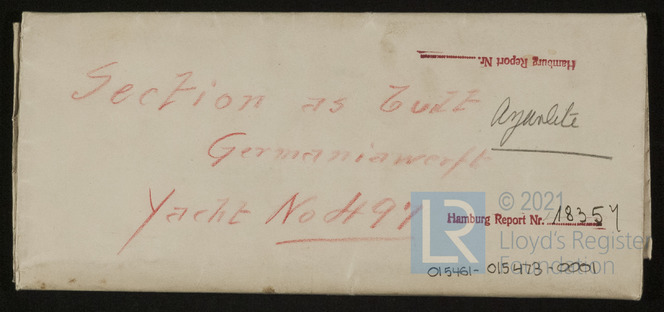 Hamburg Report Nr.
Section as built
Germaniawerft
Yacht No 497
Hamburg Report Nr. 18357
© 2021
Lloyd's Register
Foundation
LR
015461-015473-0001